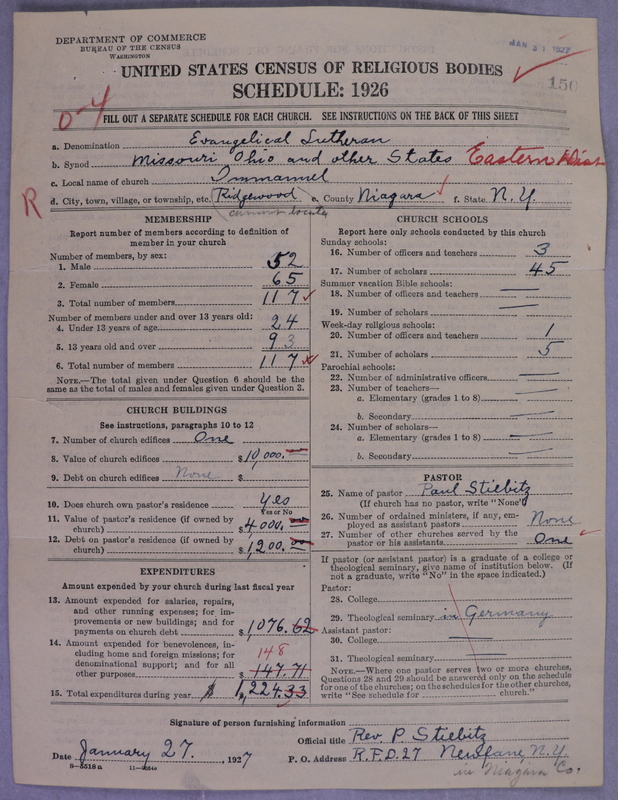 DEPARTMENT OF COMMERCE
BUREAU OF THE CENSUS
WASHINGTON
JAN 31 1927
150
UNITED STATES CENSUS OF RELIGIOUS BODIES
SCHEDULE: 1926
0-4
FILL OUT A SEPARATE SCHEDULE FOR EACH CHURCH. SEE INSTRUCTIONS ON THE BACK OF THIS SHEET
a. Denomination Evangelical Lutheran
b. Synod Missouri Ohio and other States Eastern Dist
c. Local name of church Immanuel
R
d. City, town, village, or township, etc. Ridgewood e. County Niagara f. State N.Y.
cannot locate
MEMBERSHIP
Report number of members according to definition of
member in your church
Number of members, by sex:
1. Male 52
2. Female 65
3. Total number of members 117
Number of members under and over 13 years old:
4. Under 13 years of age 24
5. 13 years old and over 93
6. Total number of members 117
NOTE.—The total given under Question 6 should be
the same as the total of males and females given under Question 3.
CHURCH BUILDINGS
See instructions, paragraphs 10 to 12
7. Number of church edifices One
8. Value of church edifices $10,000.00
9. Debt on church edifices None $
10. Does church own pastor's residence Yes
Yes or No
11. Value of pastor's residence (if owned by
church) $4000.00
12. Debt on pastor's residence (if owned by
church) $1200.00
EXPENDITURES
Amount expended by your church during last fiscal year
13. Amount expended for salaries, repairs,
and other running expenses; for im-
provements or new buildings; and for
payments on church debt $1076.62
14. Amount expended for benevolences, in-
cluding home and foreign missions; for
denominational support; and for all
other purposes 148 $147.71
15. Total expenditures during year $1,224.33
CHURCH SCHOOLS
Report here only schools conducted by this church
Sunday schools:
16. Number of officers and teachers 3
17. Number of scholars 45
Summer vacation Bible schools:
18. Number of officers and teachers —
19. Number of scholars —
Week-day religious schools:
20. Number of officers and teachers 1
21. Number of scholars 5
Parochial schools:
22. Number of administrative officers —
23. Number of teachers—
a. Elementary (grades 1 to 8) —
b. Secondary —
24. Number of scholars—
a. Elementary (grades 1 to 8) —
b. Secondary —
PASTOR
25. Name of pastor Paul Stiebitz
(If church has no pastor, write "None")
26. Number of ordained ministers, if any, em-
ployed as assistant pastors None
27. Number of other churches served by the
pastor or his assistants One
If pastor (or assistant pastor) is a graduate of a college or
theological seminary, give name of institution below. (If
not a graduate, write "No" in the space indicated.)
Pastor:
28. College
29. Theological seminary in Germany
Assistant pastor:
30. College —
31. Theological seminary —
NOTE.—Where one pastor serves two or more churches,
Questions 28 and 29 should be answered only on the schedule
for one of the churches; on the schedules for the other churches,
write "See schedule for church."
Signature of person furnishing information
Official title Rev. P Stiebitz
Date January 27, 1927
P. O. Address R.F.D. 27 Newfane, N.Y.
in Niagara Co.
8—5518a